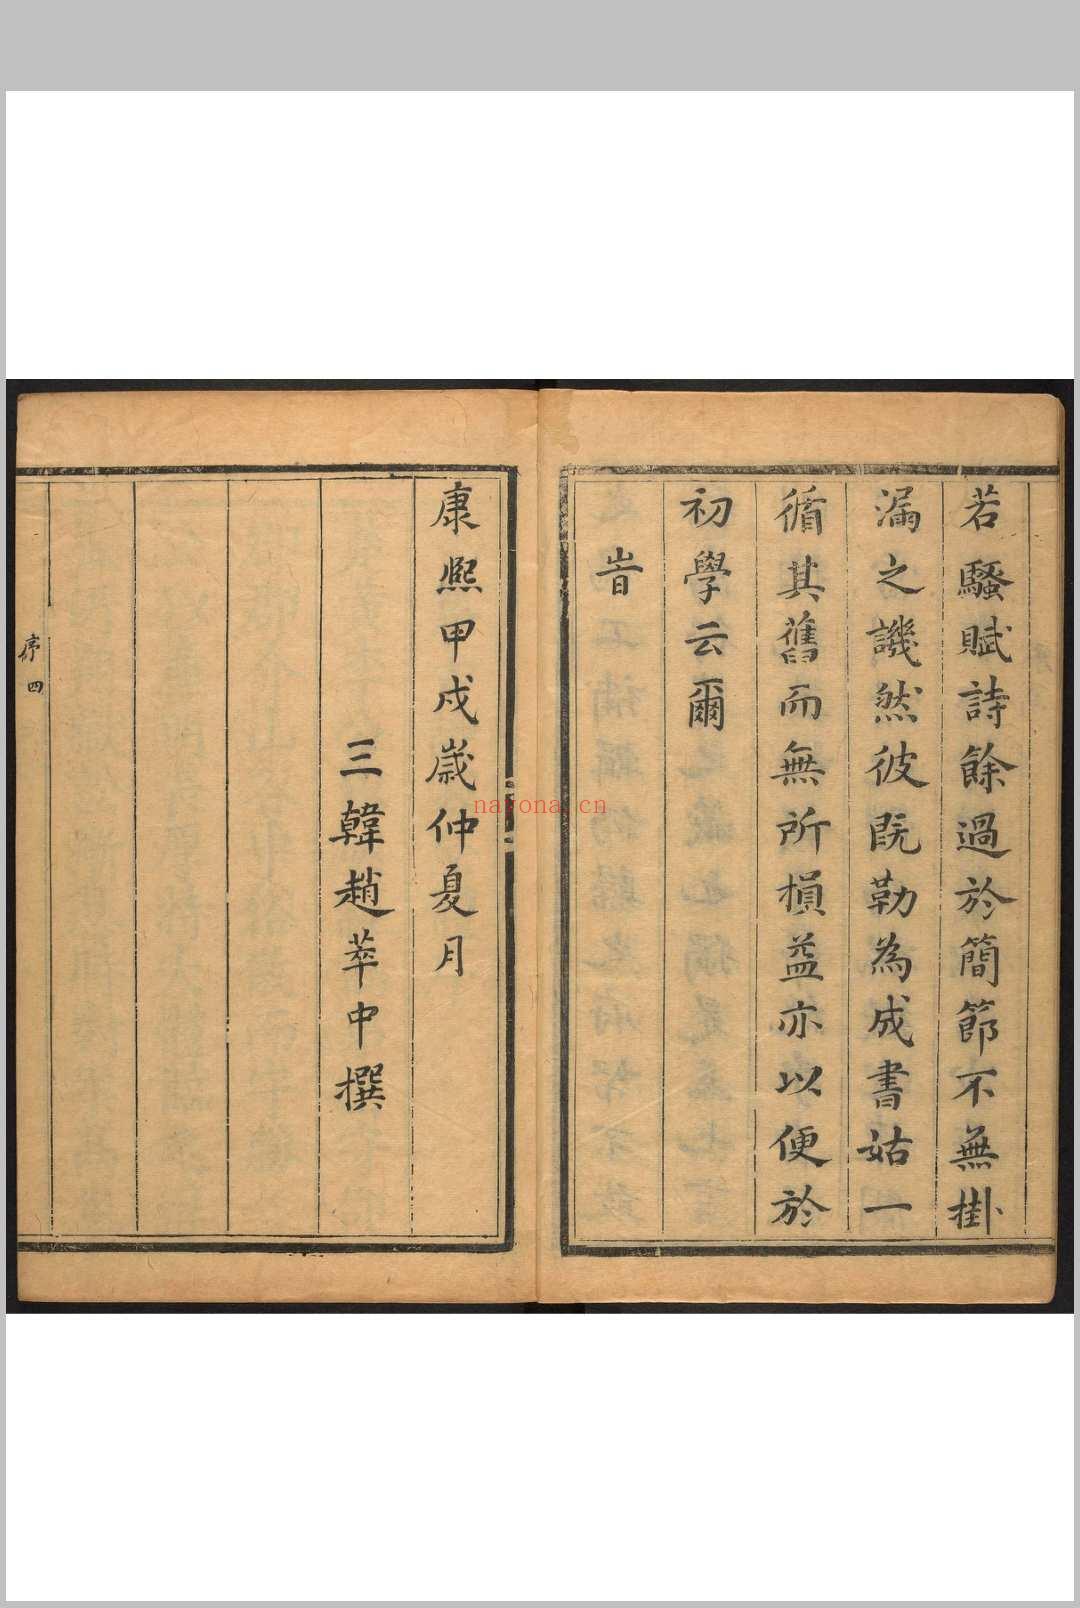 若騷賦詩餘過於簡節不無掛
漏之譏然彼既勒為成書姑一
循其舊而無所損益亦以便於
初學云爾
旹
康熙甲戌歲仲夏月
三韓趙苹中撰
序 四
nayona.cn